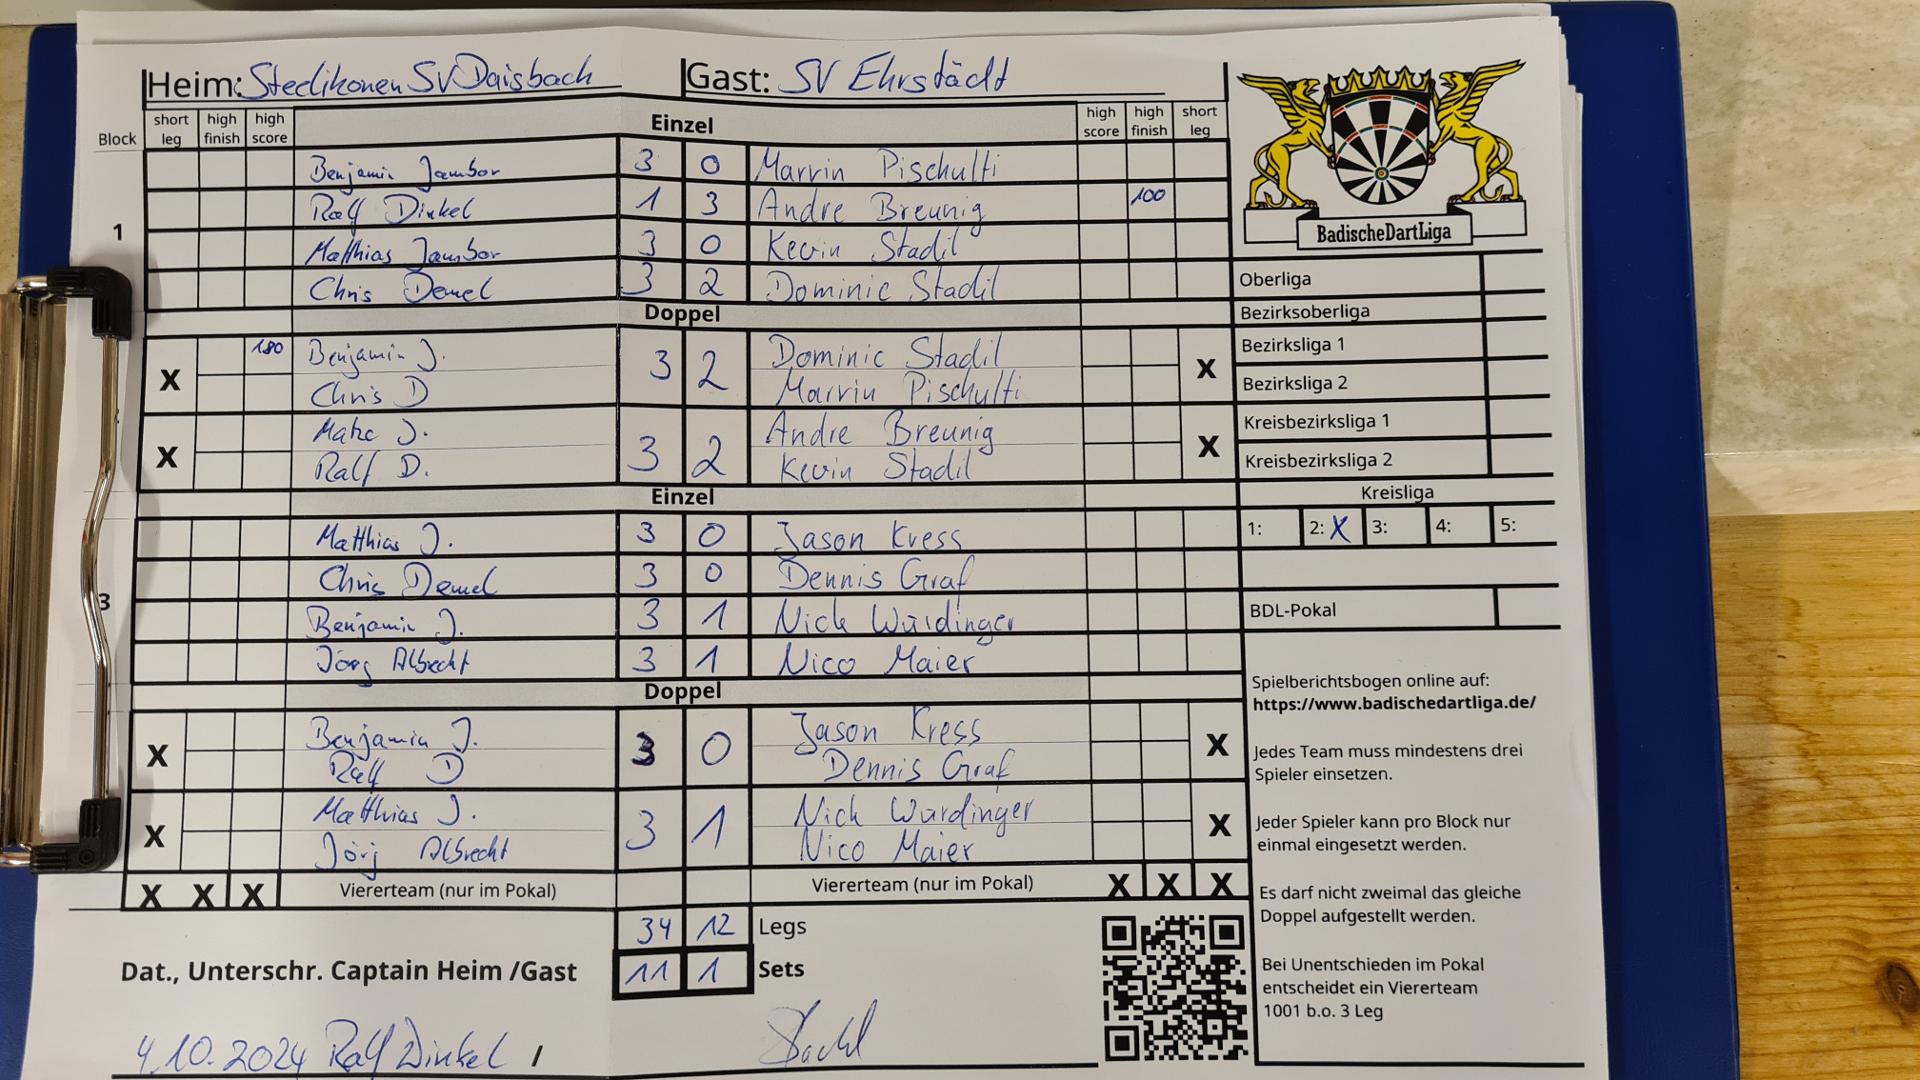 Heim: Steelikonen SV Daisbach Gast: SV Ehrstädt
Block short leg high finish high score Einzel high score high finish short leg
Benjamin Jambor 3 0 Marvin Pischulti
1 Ralf Dinkel 1 3 Andre Breunig 100
Matthias Jambor 3 0 Kevin Stadil
Chris Demel 3 2 Dominic Stadil
Doppel
X 180 Benjamin J. 3 2 Dominic Stadil X
Chris D Marvin Pischulti
X Matze J. 3 2 Andre Breunig X
Ralf D. Kevin Stadil
Einzel
Matthias J. 3 0 Jason Kress
3 Chris Demel 3 0 Dennis Graf
Benjamin J. 3 1 Nick Würdinger
Jörg Albrecht 3 1 Nico Maier
Doppel
X Benjamin J. 3 0 Jason Kress X
Ralf D Dennis Graf
X Matthias J. 3 1 Nick Würdinger X
Jörg Albrecht Nico Maier
X X X Viererteam (nur im Pokal) Viererteam (nur im Pokal) X X X
34 12 Legs
Dat., Unterschr. Captain Heim /Gast 11 1 Sets
4.10.2024 Ralf Dinkel /
BadischeDartLiga
Oberliga
Bezirksoberliga
Bezirksliga 1
Bezirksliga 2
Kreisbezirksliga 1
Kreisbezirksliga 2
Kreisliga
1: 2: X 3: 4: 5:
BDL-Pokal
Spielberichtsbogen online auf:
https://www.badischedartliga.de/
Jedes Team muss mindestens drei
Spieler einsetzen.
Jeder Spieler kann pro Block nur
einmal eingesetzt werden.
Es darf nicht zweimal das gleiche
Doppel aufgestellt werden.
Bei Unentschieden im Pokal
entscheidet ein Viererteam
1001 b.o. 3 Leg